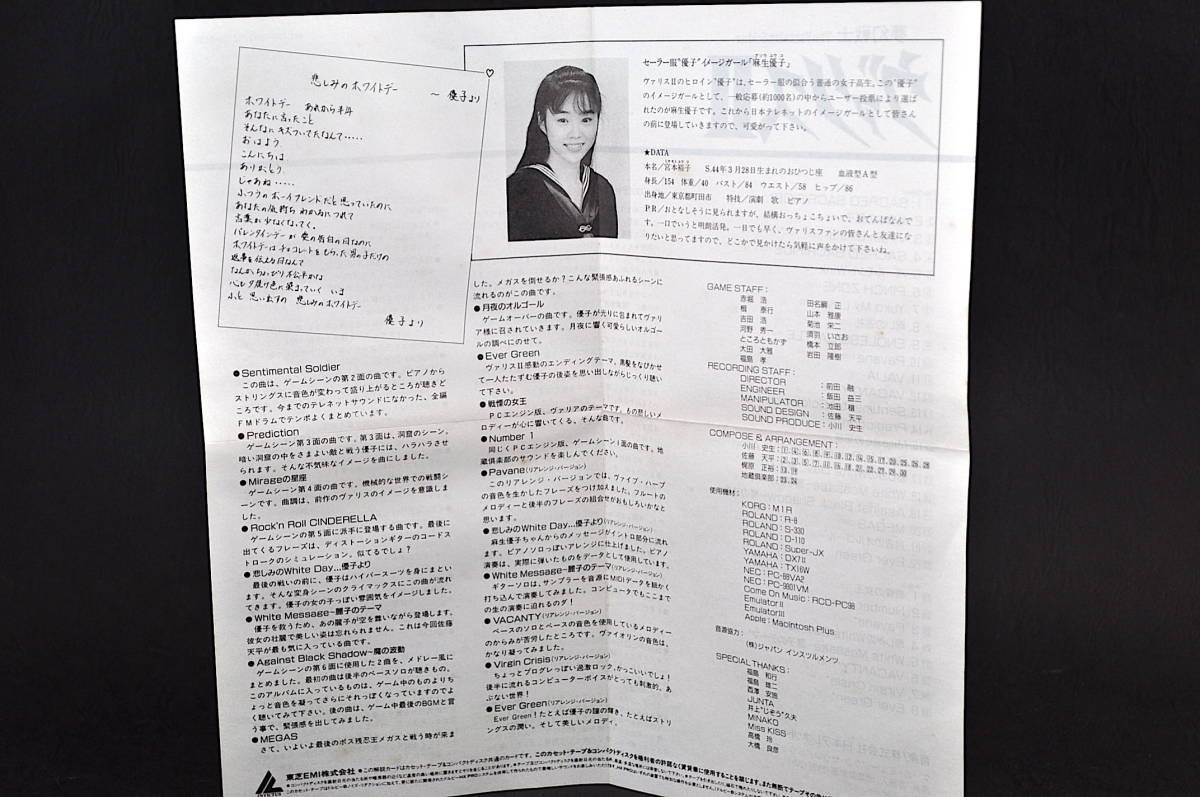 悲しみのホワイトデー
～ 優子より
ホワイトデー あれから半年
あなたに言ったこと
そんなにキズついてたなんて‥‥‥
おはよう
こんにちは
ありがとう
じゃあね‥‥‥
ふつうのボーイフレンドだと思っていたのに
あなたの気持ちわかるにつれて
言葉が少なくなってく。
バレンタインデーが愛の告白の日なのに
ホワイトデーはチョコレートをもらった男の子だけの
返事を伝える日なんて
なんかちょっぴり不公平かな
心も夕焼け色に染まっていく いま
ふと思いますの 悲しみのホワイトデー
優子より
セーラー服"優子"イメージガール「麻生優子」
ヴァリスIIのヒロイン"優子"は、セーラー服の似合う普通の女子高生。この"優子"
のイメージガールとして、一般応募(約1000名)の中からユーザー投票により選ば
れたのが麻生優子です。これから日本テレネットのイメージガールとして皆さん
の前に登場していきますので、可愛がって下さい。
★DATA
本名／宮本裕子 S.44年3月28日生まれのおひつじ座 血液型A型
身長／154 体重／40 バスト／84 ウエスト／58 ヒップ／86
出身地／東京都町田市 特技／演劇 歌 ピアノ
PR／おとなしそうに見られますが、結構おっちょこちょいで、おてんばなんで
す。一口でいうと明朗活発。一日でも早く、ヴァリスファンの皆さんと友達にな
りたいと思ってますので、どこかで見かけたら気軽に声をかけて下さいね。
●Sentimental Soldier
この曲は、ゲームシーンの第2面の曲です。ピアノから
ストリングスに音色が変わって盛り上がるところが聴きど
ころです。今までのテレネットサウンドになかった、全編
FMドラムでテンポよくまとめています。
●Prediction
ゲームシーン第3面の曲です。第3面は、洞窟のシーン。
暗い洞窟の中をさまよい敵と戦う優子には、ハラハラさせ
られます。そんな不気味なイメージを曲にしました。
●Mirageの星座
ゲームシーン第4面の曲です。機械的な世界での戦闘シ
ーンです。曲調は、前作のヴァリスのイメージを意識しま
した。
●Rock'n Roll CINDERELLA
ゲームシーンの第5面に派手に登場する曲です。最後に
出てくるフレーズは、ディストーションギターのコードス
トロークのシミュレーション。似てるでしょ？
●悲しみのWhite Day...優子より
最後の戦いの前に、優子はハイパースーツを身にまとい
ます。そんな変身シーンのクライマックスにこの曲が流れ
てきます。優子の女の子っぽい雰囲気をイメージしました。
●White Message~麗子のテーマ
優子を救うため、あの麗子が空を舞いながら登場します。
彼女の壮麗で美しい姿は忘れられません。これは今回佐藤
天平が最も気に入っている曲です。
●Against Black Shadow~魔の波動
ゲームシーンの第6面に使用した2曲を、メドレー風に
まとめました。最初の曲は後半のベースソロが聴きもの。
このアルバムに入っているものは、ゲーム中のものよりち
ょっと音色を凝ってさらにそれっぽくなっていますのでよ
く聴いてみて下さい。後の曲は、ゲーム中最後のBGMと言
う事で、緊張感を出してみました。
●MEGAS
さて、いよいよ最後のボス残忍王メガスと戦う時が来ま
した。メガスを倒せるか？こんな緊張感あふれるシーンに
流れるのがこの曲です。
●月夜のオルゴール
ゲームオーバーの曲です。優子が光りに包まれてヴァリ
ア様に召されていきます。月夜に響く可愛らしいオルゴー
ルの調べにのせて。
●Ever Green
ヴァリスII感動のエンディングテーマ。黒髪をなびかせ
て一人たたずむ優子の後姿を思い出しながらじっくり聴い
て下さい。
●戦慄の女王
PCエンジン版、ヴァリアのテーマです。もの悲しいメ
ロディーが心に響いてくる、そんな曲です。
●Number 1
同じくPCエンジン版、ゲームシーン1面の曲です。地
蔵倶楽部のサウンドを楽しんでください。
●Pavane(リアレンジ・バージョン)
このリアレンジ・バージョンでは、ヴァイブ・ハープ
の音色を生かしたフレーズをつけ加えました。フルートの
メロディーと後半のフレーズの組合せがおもしろいかなと
思います。
●悲しみのWhite Day...優子より(リアレンジ・バージョン)
麻生優子ちゃんからのメッセージがイントロ部分に流れ
ます。ピアノソロっぽいアレンジに仕上げました。ピアノ
演奏は、実際に弾いたものをデータとして使用しています。
●White Message~麗子のテーマ(リアレンジ・バージョン)
ギターソロは、サンプラーを音源にMIDIデータを細かく
打ち込んで演奏してみました。コンピュータでもここまで
の生の演奏に迫れるのダ！
●VACANTY(リアレンジ・バージョン)
ベースのソロとベースの音色を使用しているメロディー
のからみが苦労したところです。ヴァイオリンの音色は、
かなり凝ってみました。
●Virgin Crisis(リアレンジ・バージョン)
ちょっとプログレっぽい過激ロック。かっこいいでしょ！
後半に流れるコンピューターボイスがとっても刺激的。あ
ぶない世界！
●Ever Green(リアレンジ・バージョン)
Ever Green！たとえば優子の瞳の輝き、たとえばストリ
ングスの潤い。そして美しいメロディ。
GAME STAFF：
赤堀 浩 田名網 正
相 泰行 山本 雅康
吉田 浩 菊池 栄二
河野 秀一 須羽 いさお
ところともかず 橋本 立郎
大田 大雅 岩田 隆樹
福島 孝
RECORDING STAFF：
DIRECTOR ：前田 融
ENGINEER ：飯田 益三
MANIPULATOR ：池田 積
SOUND DESIGN ：佐藤 天平
SOUND PRODUCE：小川 史生
COMPOSE & ARRANGEMENT：
小川 史生：
佐藤 天平：
梶原 正裕：
地蔵倶楽部：
使用機材：
KORG：M1R
ROLAND：R-8
ROLAND：S-330
ROLAND：D-110
ROLAND：Super-JX
YAMAHA：DX7II
YAMAHA：TX16W
NEC：PC-88VA2
NEC：PC-9801VM
Come On Music：RCD-PC98
EmulatorII
EmulatorIII
Apple：Macintosh Plus
音源協力：
(株)ジャパン インスツルメンツ
SPECIAL THANKS：
福島 和行
福島 雄二
西澤 安施
JUNTA
井上"じぞう"久夫
MINAKO
Miss KISS
高橋 玲
大橋 良彦
東芝EMI株式会社